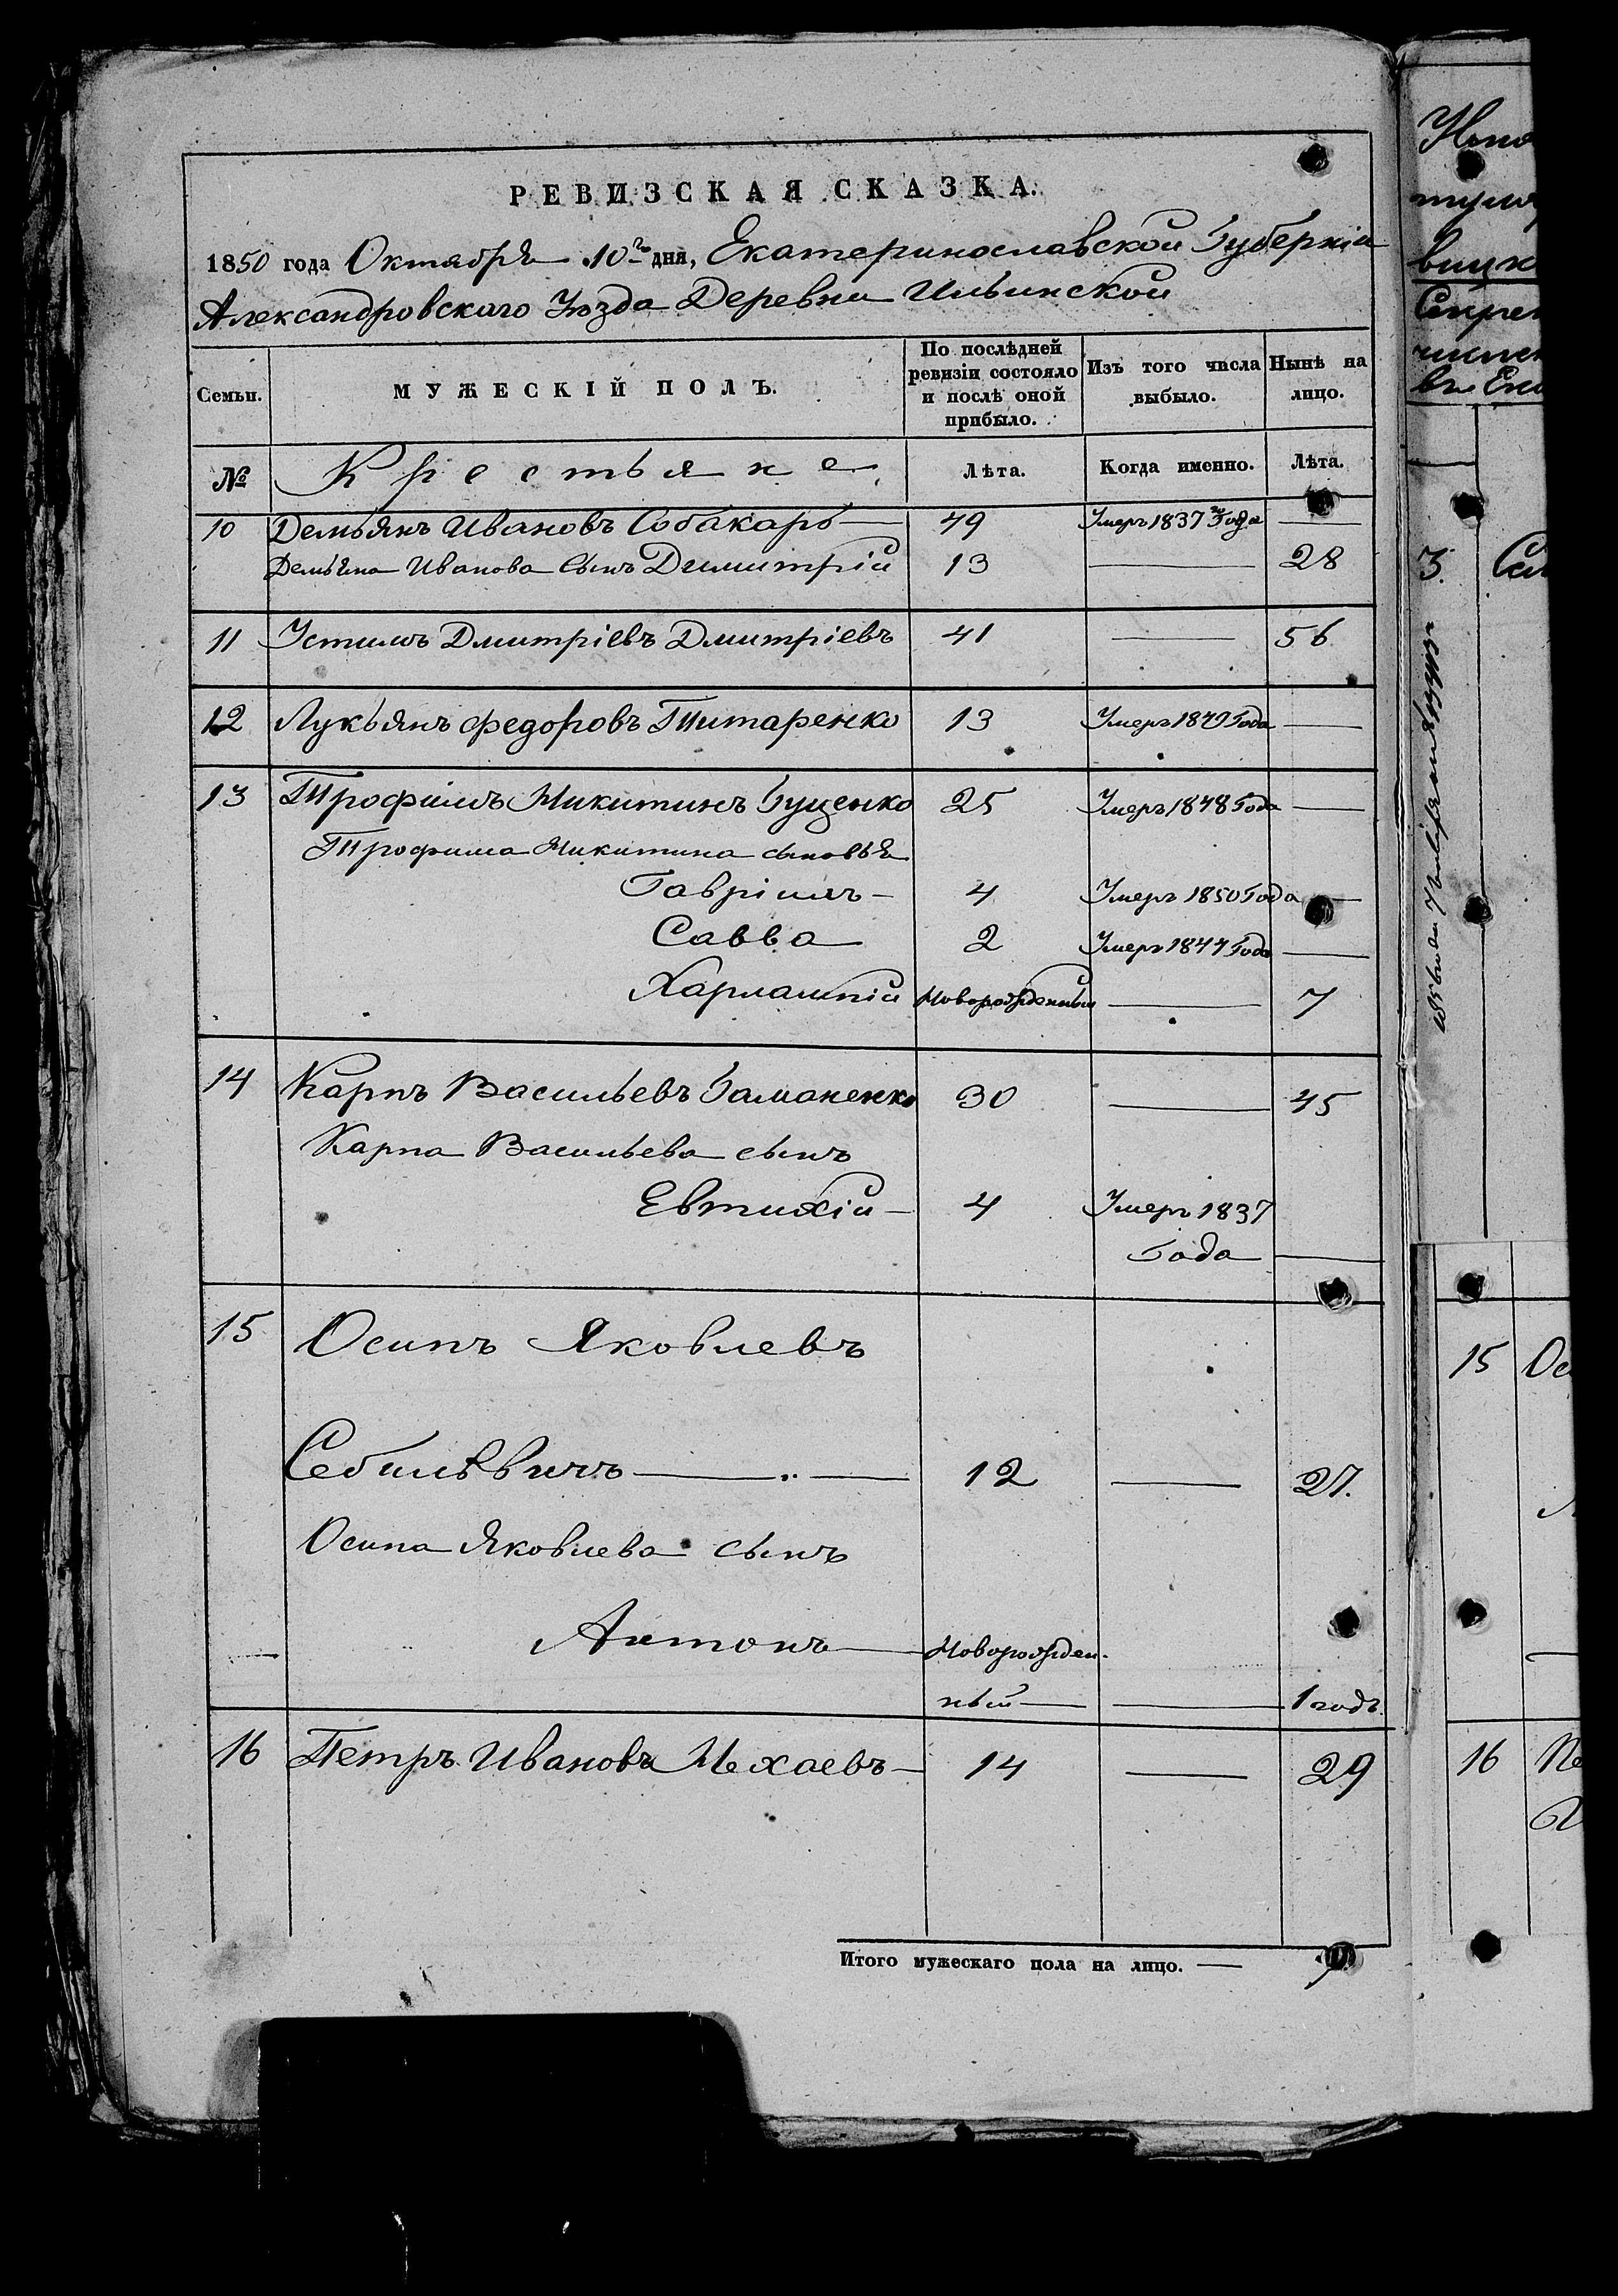 РЕВИЗСКАЯ СКАЗКА.
1850 года Октября 10го дня, Екатеринославской Губерніи
Александровскаго Уѣзда Деревни Ильинской
Семьи.
МУЖЕСКІЙ ПОЛЪ.
По послѣдней ревизіи состояло и послѣ оной прибыло.
Изъ того числа выбыло.
Нынѣ на лицо.
№ Крестьяне Лѣта. Когда именно. Лѣта.
10 Демьянъ Ивановъ Собакарь — 49 Умеръ 1837го Года —
Демьяна Иванова Сынъ Димитрій 13 — 28
11 Устимъ Дмитріевъ Дмитріевъ 41 — 56
12 Лукьянъ Федоровъ Титаренко 13 Умеръ 1849 Года —
13 Трофимъ Никитинъ Гуценко 25 Умеръ 1848 Года —
Трофима Никитина сыновья
Гавріилъ — 4 Умеръ 1850 Года —
Савва 2 Умеръ 1844 Года —
Харлампій Новорожденный — 7
14 Карпъ Васильевъ Гаманенко 30 — 45
Карпа Васильева сынъ
Евтихій — 4 Умеръ 1837
Года —
15 Осипъ Яковлевъ
12 — 27.
Осипа Яковлева сынъ
Антонъ — Новорожден-
ный — — 1 годъ.
16 Петръ Ивановъ — 14 — 29
Итого мужескаго пола на лицо. —
3.
15 Ос
16 Пе